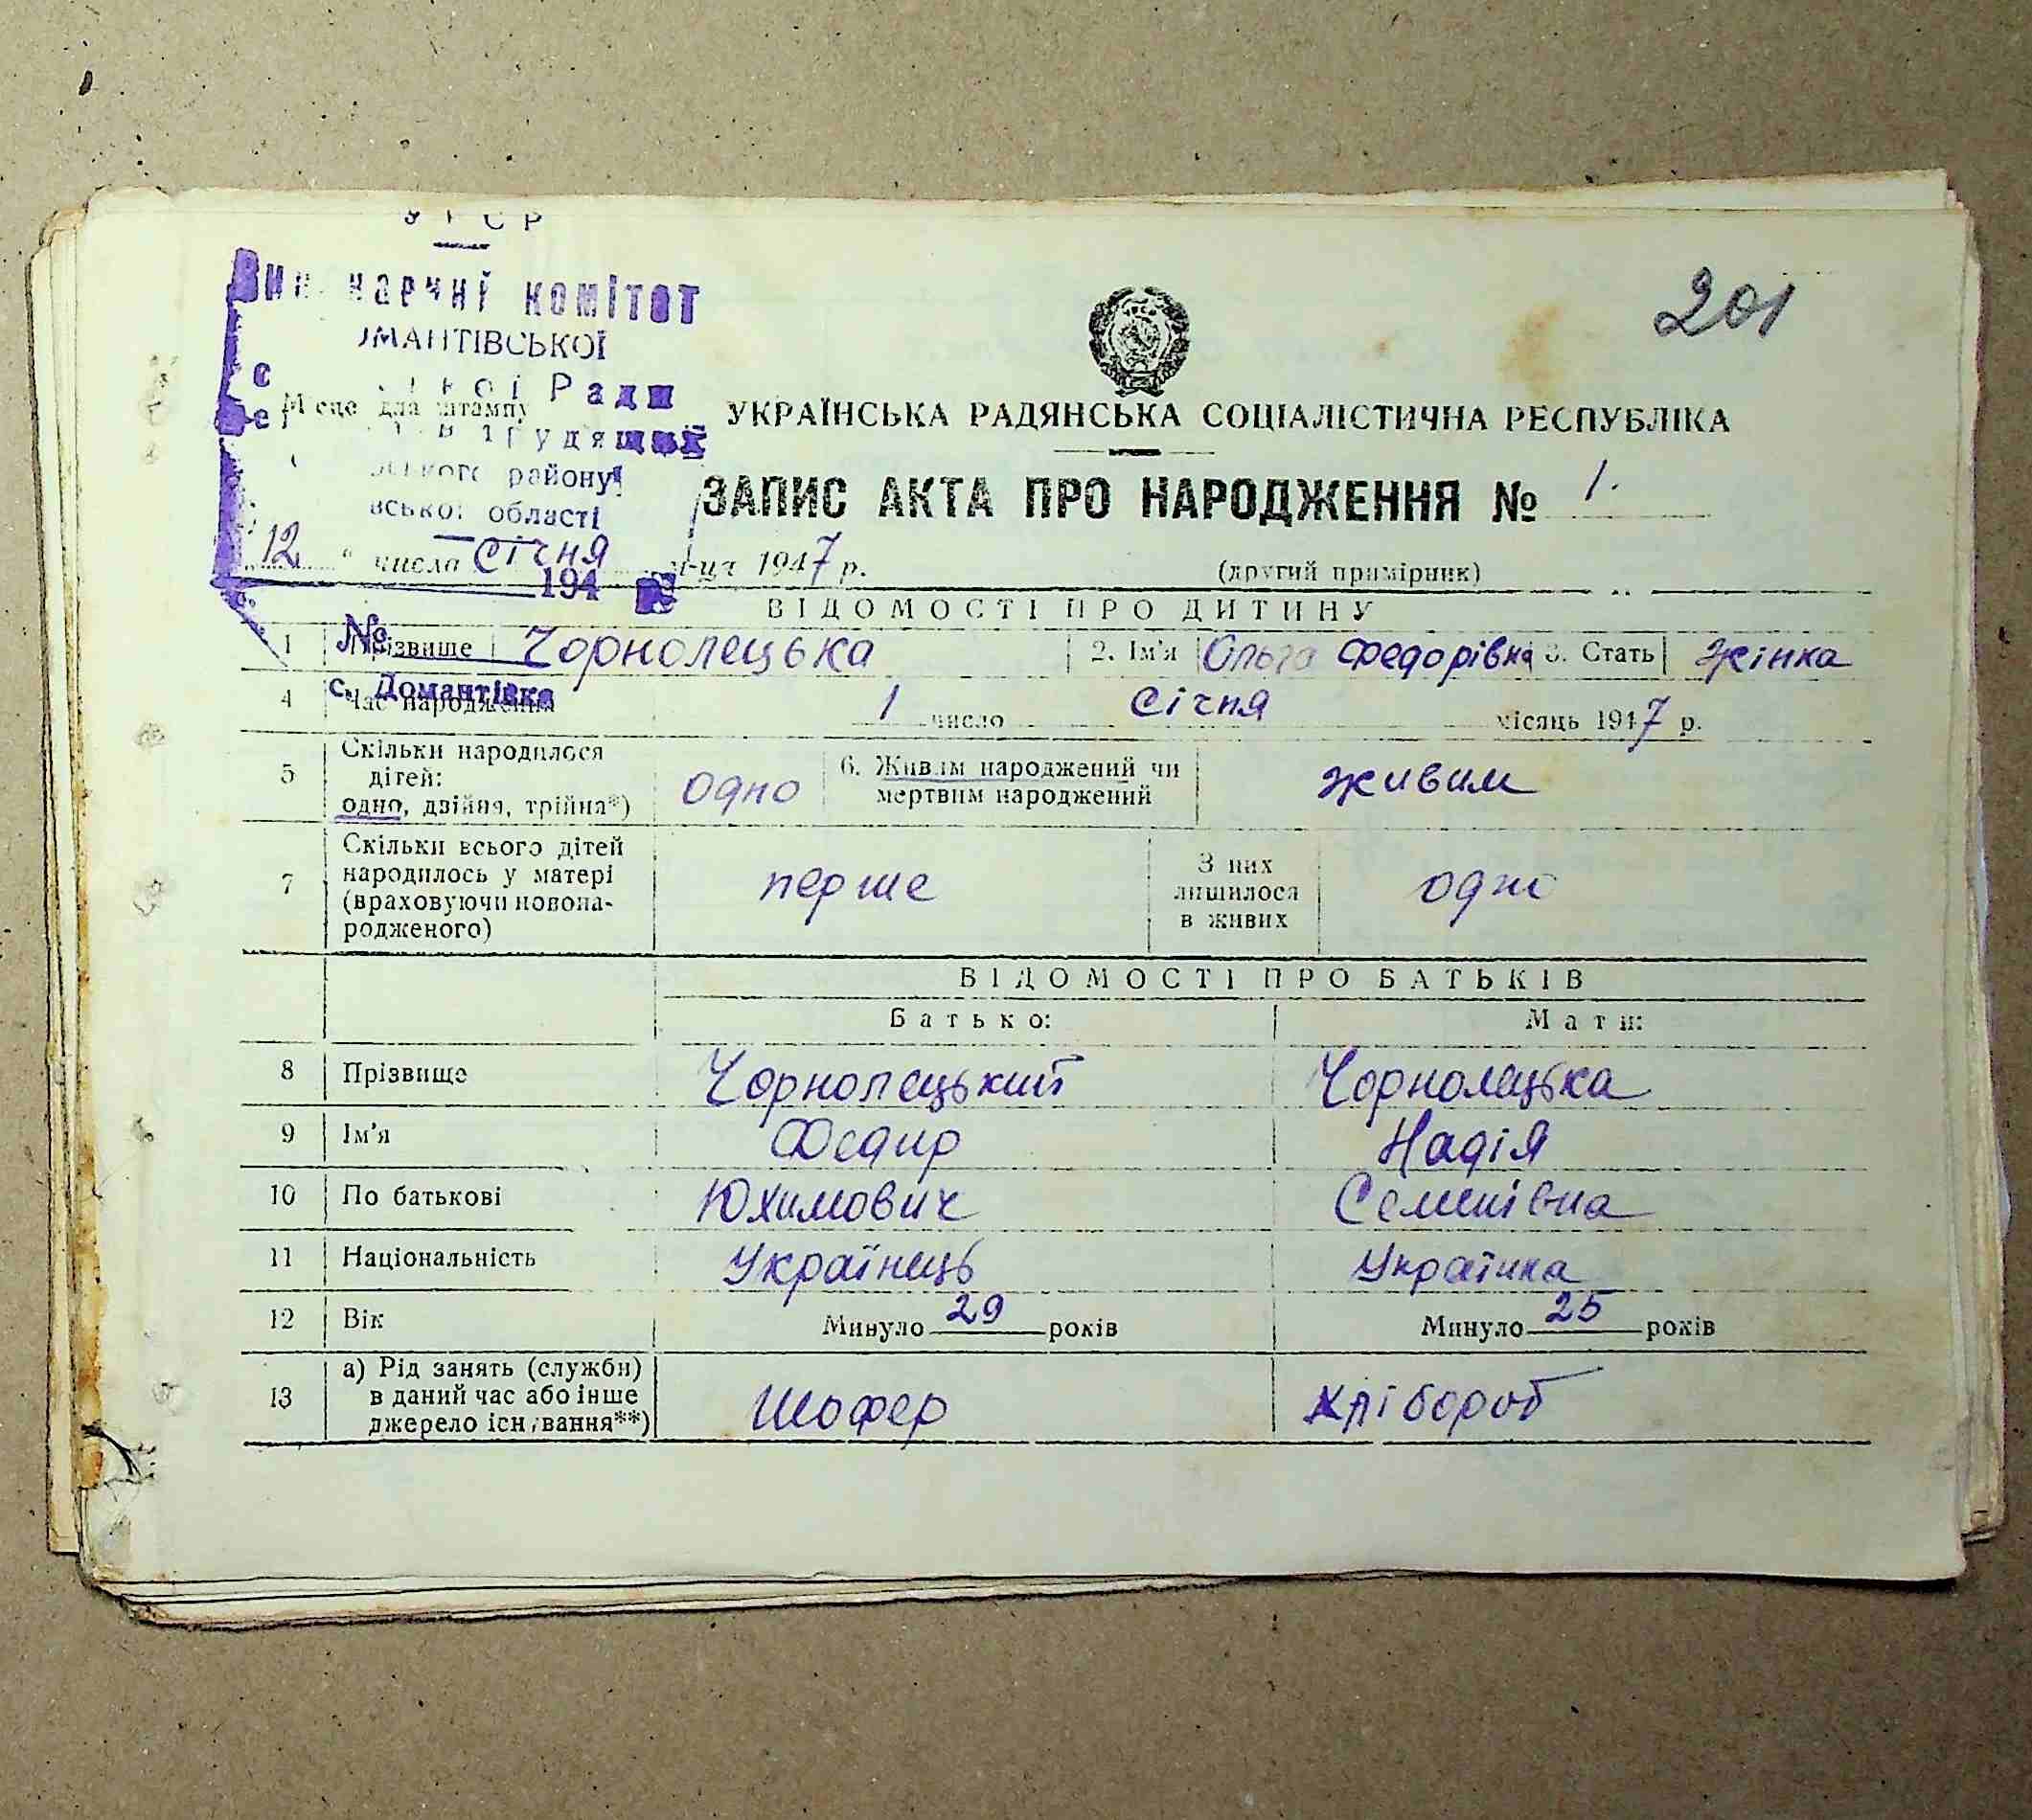 У Р С Р
201
комітет
МАНТІВСЬКОЇ
Ради
Місце для штампу
трудящих
району
області
УКРАЇНСЬКА РАДЯНСЬКА СОЦІАЛІСТИЧНА РЕСПУБЛІКА
ЗАПИС АКТА ПРО НАРОДЖЕННЯ № 1.
12 " числа січня м-ця 1947 р.
(другий примірник)
194
ВІДОМОСТІ ПРО ДИТИНУ
№
1 Прізвище Чорнолецька 2. Ім'я Ольга Федорівна 3. Стать жінка
с. Домантівка
4 Час народження 1 число січня місяць 1947 р.
5 Скільки народилося дітей: одно, двійня, трійня*) одно 6. Живим народжений чи мертвим народжений живим
7 Скільки всього дітей народилось у матері (враховуючи новона-родженого) перше З них лишилося в живих одно
ВІДОМОСТІ ПРО БАТЬКІВ
Батько: Мати:
8 Прізвище Чорнолецький Чорнолецька
9 Ім'я Федир Надія
10 По батькові Юхимович Семенівна
11 Національність Українець Українка
12 Вік Минуло 29 років Минуло 25 років
13 а) Рід занять (служби) в даний час або інше джерело існування**) Шофер хлібороб